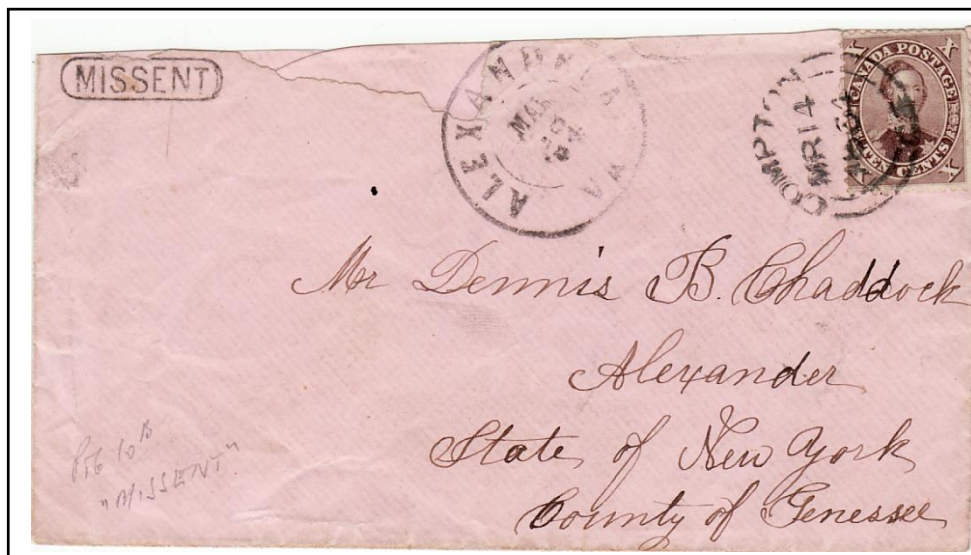 MISSENT
ALEXANDRIA VA
COMPTON
MR 14
X CANADA POSTAGE X
TEN CENTS
X X
Mr Dennis B. Chaddock
Alexander
State of New York
County of Genessee
"MISSENT"